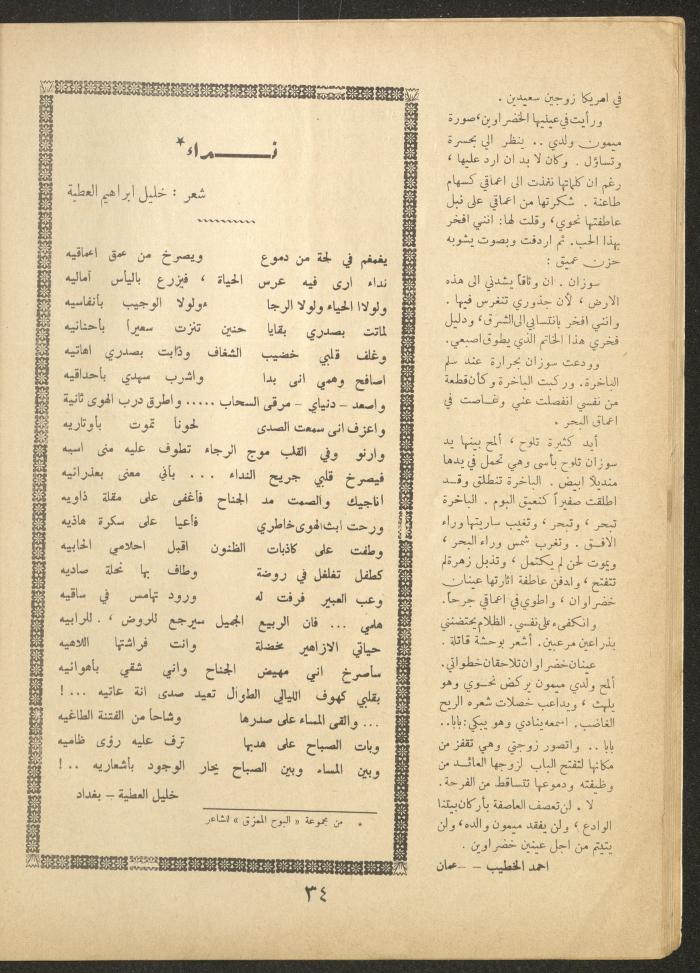 في امريكا زوجين سعيدين .
ورأيت في عينيها الخضراوين، صورة
ميمون ولدي .. ينظر الي بحسرة
وتساؤل . وكان لا بد ان ارد عليها ،
رغم ان كلماتها نفذت الى اعماقي كسهام
طاعنة . شكرتها من اعماقي على نبل
عاطفتها نحوي، وقلت لها: انني افخر
بهذا الحب. ثم اردفت وبصوت يشوبه
حزن عميق :
سوزان . ان وثاقاً يشدني الى هذه
الارض ، لأن جذوري تنغرس فيها .
وانني افخر بانتسابي الى الشرق، ودليل
فخري هذا الخاتم الذي يطوق اصبعي.
وودعت سوزان بحرارة عند سلم
الباخرة. وركبت الباخرة وكأن قطعة
من نفسي انفصلت عني وغاصت في
اعماق البحر .
أيد كثيرة تلوح ، ألمح بينها يد
سوزان تلوح بأسى وهي تحمل في يدها
منديلا ابيض . الباخرة تنطلق وقد
اطلقت صفيراً كنعيق البوم . الباخرة
تبحر ، وتبحر ، وتغيب ساريتها وراء
الافق . وتغرب شمس وراء البحر ،
ويموت لحن لم يكتمل ، وتذبل زهرة لم
تتفتح ، وادفن عاطفة اثارتها عينان
خضراوان ، واطوي في اعماقي جرحاً.
وانكفىء على نفسي. الظلام يحتضنني
بذراعين مرعبين. أشعر بوحشة قاتلة .
عينان خضراوان تلاحقان خطواتي.
ألمح ولدي ميمون يركض نحوي وهو
يلهث ، ويداعب خصلات شعره الريح
الغاضب. اسمعه ينادي وهو يبكي: بابا..
بابا .. واتصور زوجتي وهي تقفز من
مكانها لتفتح الباب لزوجها العائد من
وظيفته ودموعها تتساقط من الفرحة.
لا . لن تعصف العاصفة بأركان بيتنا
الوادع ، ولن يفقد ميمون والده، ولن
يتيتم من اجل عينين خضراوين .
احمد الخطيب - - عمان
نداء*
شعر : خليل ابراهيم العطية
يغمغم في لجة من دموع ويصرخ من عمق اعماقيه
نداء ارى فيه عرس الحياة ، فيزرع باليأس آماليه
ولولا الحياء ولولا الرجا ءولولا الوجيب بأنفاسيه
لماتت بصدري بقايا حنين تنزت سعيراً بأحنائيه
وغلف قلبي خضيب الشغاف وذابت بصدري اهاتيه
اصافح وهمي انى بدا واشرب سهدي بأحداقيه
واصعد - دنياي - مرقى السحاب ..... واطرق درب الهوى ثانية
واعزف انى سمعت الصدى لحونا تموت بأوتاريه
وارنو وفي القلب موج الرجاء تطوف عليه منى اسيه
فيصرخ قلبي جريح النداء ... بأني معنى بعذرائيه
اناجيك والصمت مد الجناح فأغفى على مقلة ذاويه
ورحت ابث الهوى خاطري فأعيا على سكرة هاذيه
وطفت على كاذبات الظنون اقبل احلامي الحابيه
كطفل تغلغل في روضة وطاف بها نحلة صاديه
وعب العبير فرفت له ورود تهامس في ساقيه
هلمي ... فان الربيع الجميل سيرجع للروض ، للرابيه
حياتي الازاهير مخضلة وانت فراشتها اللاهيه
سأصرخ اني مهيض الجناح واني شقي بأهوائيه
بقلبي كهوف الليالي الطوال تعيد صدى انة عاتيه ...!
... والقى المساء على صدرها وشاحا من الفتنة الطاغيه
وبات الصباح على هدبها ترف عليه رؤى ظاميه
وبين المساء وبين الصباح يحار الوجود بأشعاريه ..!
خليل العطية - بغداد
* من مجموعة « البوح الممزق » للشاعر
٣٤